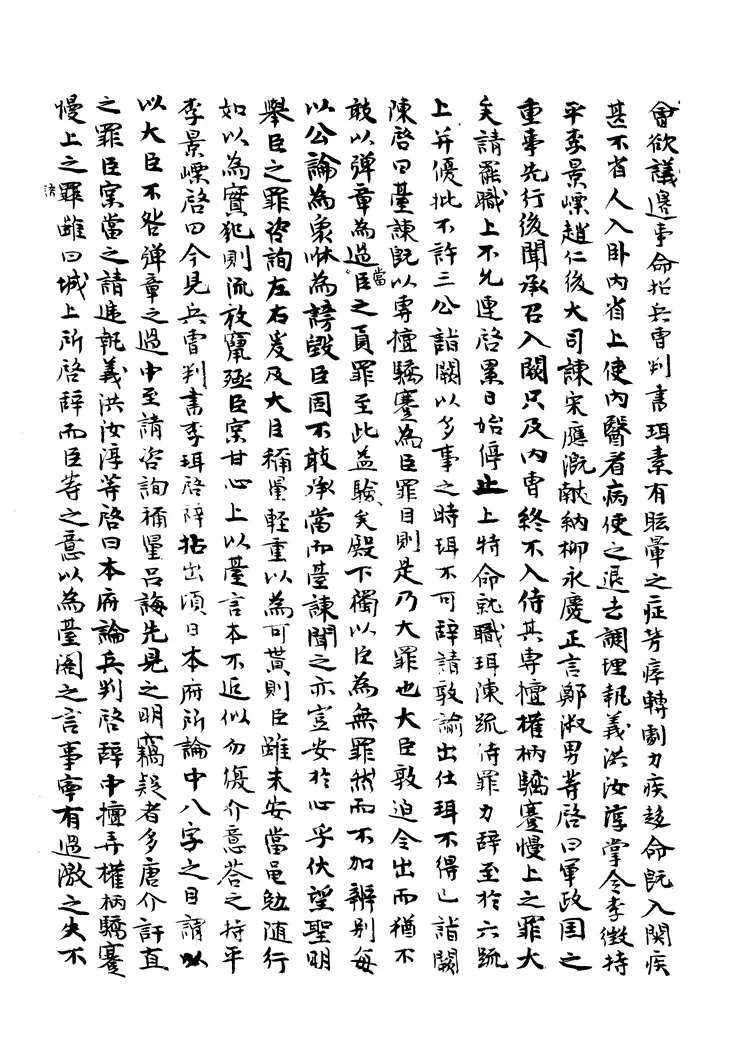 會欲議邊事命招兵曹判書珥素有眩暈之症勞瘁轉劇力疾趍命旣入闕疾
甚不省人入臥內省上使內醫看病使之退去調理執義洪汝諄掌令李徵持
平李景嵥趙仁後大司諫宋應漑獻納柳永慶正言鄭淑男等啓曰軍政国之
重事先行後聞承召入闕只及內曹終不入侍其専擅權柄驕蹇慢上之罪大
矣請罷職上不允連啓累日始停止上特命就職珥陳疏待罪力辞至於六疏
上并優批不許三公詣闕以多事之時珥不可辞請敦諭出仕珥不得已詣闕
陳啓曰臺諫旣以専擅驕蹇為臣罪目則是乃大罪也大臣敦迫令出而猶不
敢以彈章為過當臣之負罪至此益驗矣殿下獨以臣為無罪然而不加辨別每
以公論為衆咻為謗毀臣固不敢承當而臺諫聞之亦豈安於心乎伏望聖明
舉臣之罪咨詢左右爰及大臣稱量輕重以為可貰則臣雖未安當黽勉随行
如以為實犯則流放竄殛臣實甘心上以臺言本不近似勿復介意荅之持平
李景嵥啓曰今見兵曹判書李珥啓辞拈出頃日本府所論中八字之目謂以
以大臣不咎彈章之過中至請咨詢稱量呂誨先見之明竊疑者多唐介訐直
之罪臣實當之請遆執義洪汝淳等啓曰本府論兵判啓辞中擅弄權柄驕蹇
慢上之罪語雖曰城上所啓辞而臣等之意以為臺閣之言事寧有過激之失不